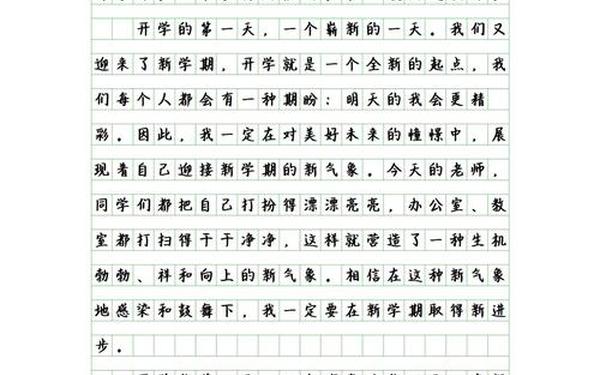 开学的第一天，一个崭新的一天。我们又
迎来了新学期，开学就是一个全新的起点，我
们每个人都会有一种期盼：明天的我会更精
彩。因此，我一定在对美好未来的憧憬中，展
现着自己迎接新学期的新气象。今天的老师，
同学们都把自己打扮得漂漂亮亮，办公室、教
室都打扫得干干净净，这样就营造了一种生机
勃勃、祥和向上的新气象。相信在这种新气象
地感染和鼓舞下，我一定要在新学期取得新进
步。